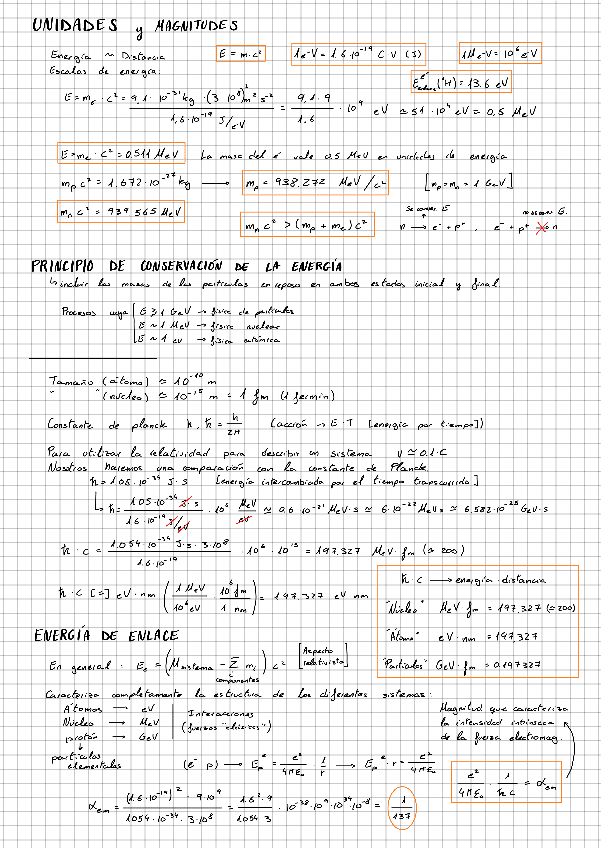 UNIDADES y MAGNITUDES
Energía ~ Distancia E = m·c² 1 e-V = 1,6·10⁻¹⁹ C·V (J) 1 MeV = 10⁶ eV
Escalas de energía:
E = mₑ·c² = 9,1·10⁻³¹ kg·(3·10⁸)² m² s⁻² / 1,6·10⁻¹⁹ J/eV = 9,1·9 / 1.6 · 10⁴ eV ≃ 51·10⁴ eV = 0,5 MeV
(¹H) = 13.6 eV
E = mₑ·c² = 0,511 MeV La masa del e⁻ vale 0.5 MeV en unidades de energía
mₚc² = 1,672·10⁻²⁷ kg → mₚ = 938.272 MeV/c² [mₚ = mₙ = 1 GeV]
mₙc² = 939.565 MeV
mₙc² > (mₚ + mₑ)c² n → e⁻ + p⁺, e⁻ + p⁺ → n
PRINCIPIO DE CONSERVACIÓN DE LA ENERGÍA
↳ incluir las masas de las partículas en reposo en ambos estados inicial y final.
Procesos cuya E ≥ 1 GeV → física de partículas
E ~ 1 MeV → física nuclear
E ~ 1 eV → física atómica
Tamaño (átomo) ≃ 10⁻¹⁰ m
" (núcleo) ≃ 10⁻¹⁵ m = 1 fm (1 fermin)
Constante de planck h, ħ = h / 2π (acción → E·T [energía por tiempo])
Para utilizar la relatividad para describir un sistema v ≃ 0.1·c
Nosotros haremos una comparación con la constante de Planck.
ħ = 1.05·10⁻³⁴ J·s [energía intercambiada por el tiempo transcurrido]
↳ ħ = 1.05·10⁻³⁴ J·s / 1.6·10⁻¹⁹ J/eV · 10⁶ MeV/eV ≃ 0.6·10⁻²¹ MeV·s ≃ 6·10⁻²² MeV s ≃ 6.582·10⁻²⁵ GeV·s
ħ·c = 1.054·10⁻³⁴ J·s·3·10⁸ / 1.6·10⁻¹⁹ · 10⁶·10¹⁵ = 197.327 MeV·fm (≃ 200)
ħ·c [=] eV·nm (1 MeV / 10⁶ eV · 10⁶ fm / 1 nm) = 197.327 eV nm
ħ·c → energía·distancia
"Núcleo" MeV fm = 197.327 (≃ 200)
"Átomo" eV·nm = 197.327
"Partículas" GeV·fm = 0.197327
ENERGÍA DE ENLACE
En general: E = (M sistema - Σ mᵢ) c² [Aspecto relativista]
componentes
Caracteriza completamente la estructura de los diferentes sistemas:
Átomos → eV
Núcleo → MeV
protón → GeV
↓
partículas elementales
Interacciones
(fuerzas "efectivas")
Magnitud que caracteriza
la intensidad intrínseca
de la fuerza electromag.
(e⁻ p) → Eₚᵉ = e² / 4πε₀ · 1/r → Eₚᵉ·r = e² / 4πε₀
e² / 4πε₀ · 1 / ħc = αₑₘ
αₑₘ = (1.6·10⁻¹⁹)²·9·10⁹ / 1.054·10⁻³⁴·3·10⁸ = 1.6²·9 / 1.054·3 · 10⁻³⁸·10⁹·10³⁴·10⁻⁸ = 1/137